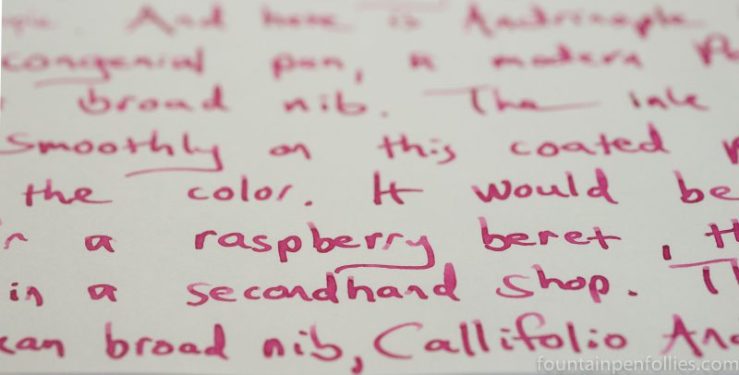 And here is Andrinople
congenial pen, a modern
broad nib. The ink
smoothly on this coated
the color. It would be
a raspberry beret,
in a secondhand shop.
broad nib, Callifolio
fountainpenfollies.com